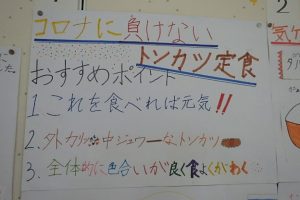 コロナに負けない
トンカツ定食
おすすめポイント
1.これを食べれは元気!!
2.外カリッ中ジュワーなトンカツ
3.全体的に色合いが良く食よくがわく
気
2